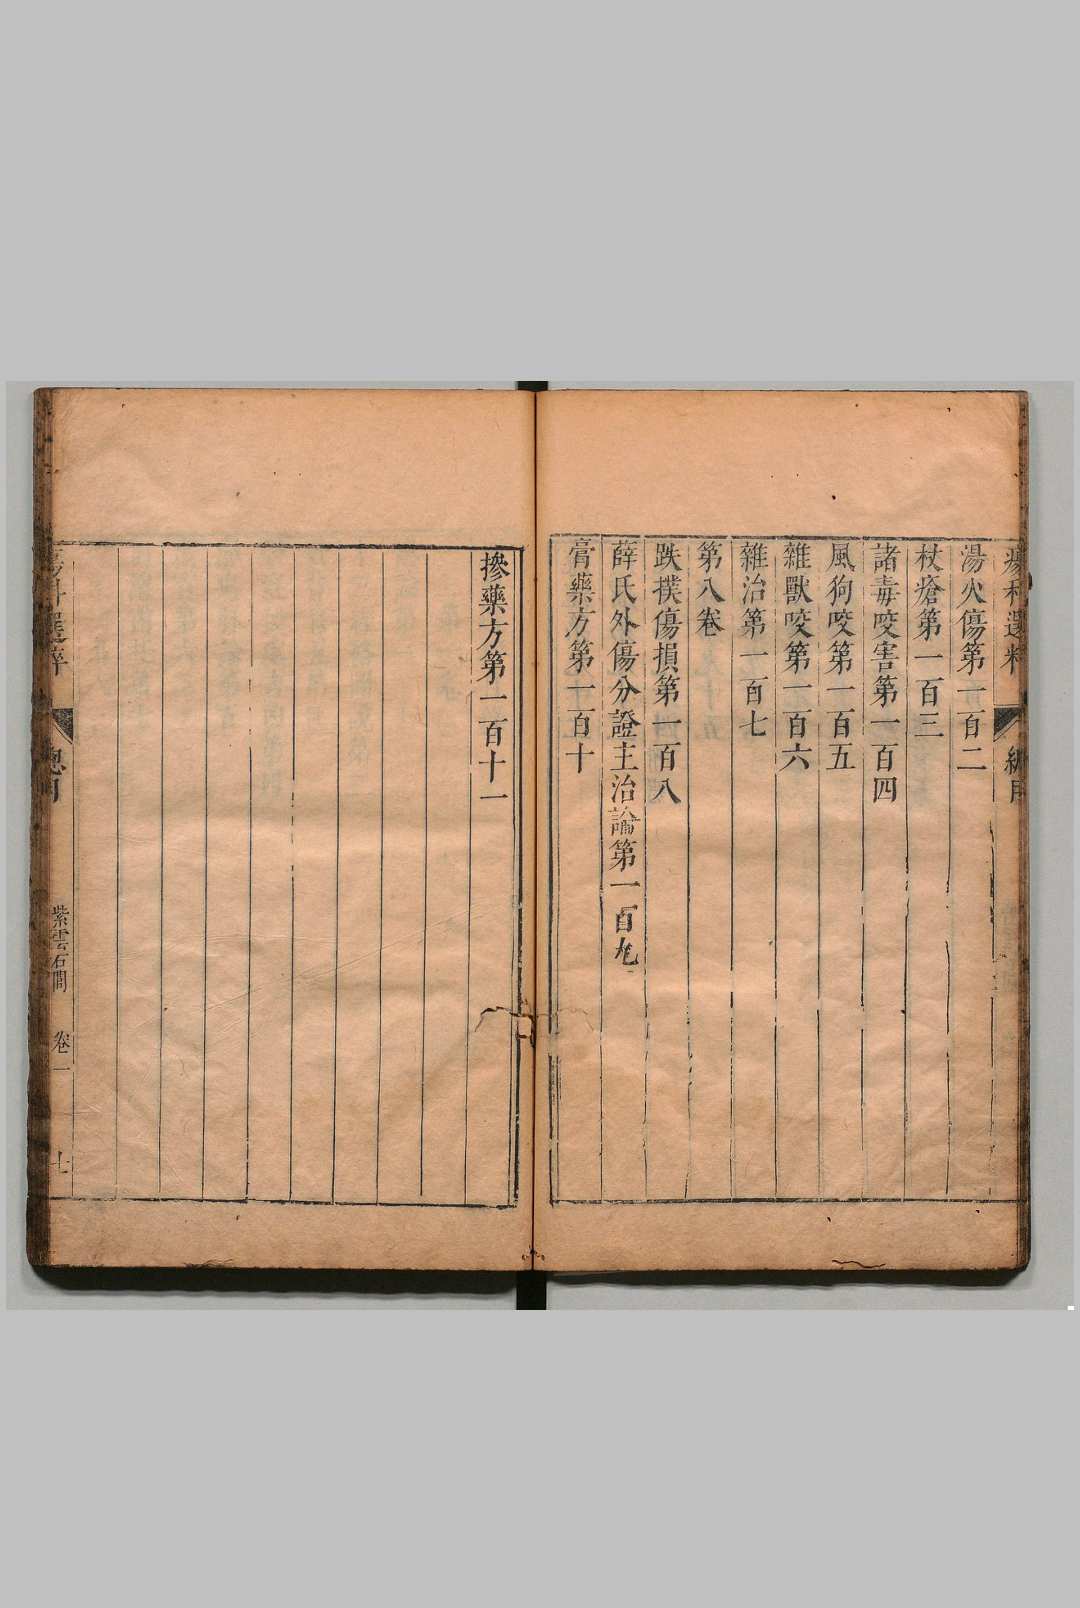 湯火傷第一百二
杖瘡第一百三
諸毒咬害第一百四
風狗咬第一百五
雜獸咬第一百六
雜治第一百七
第八卷
跌撲傷損第一百八
薛氏外傷分證主治論第一百九
膏藥方第一百十
摻藥方第一百十一
總目
紫雲石間
卷一
七